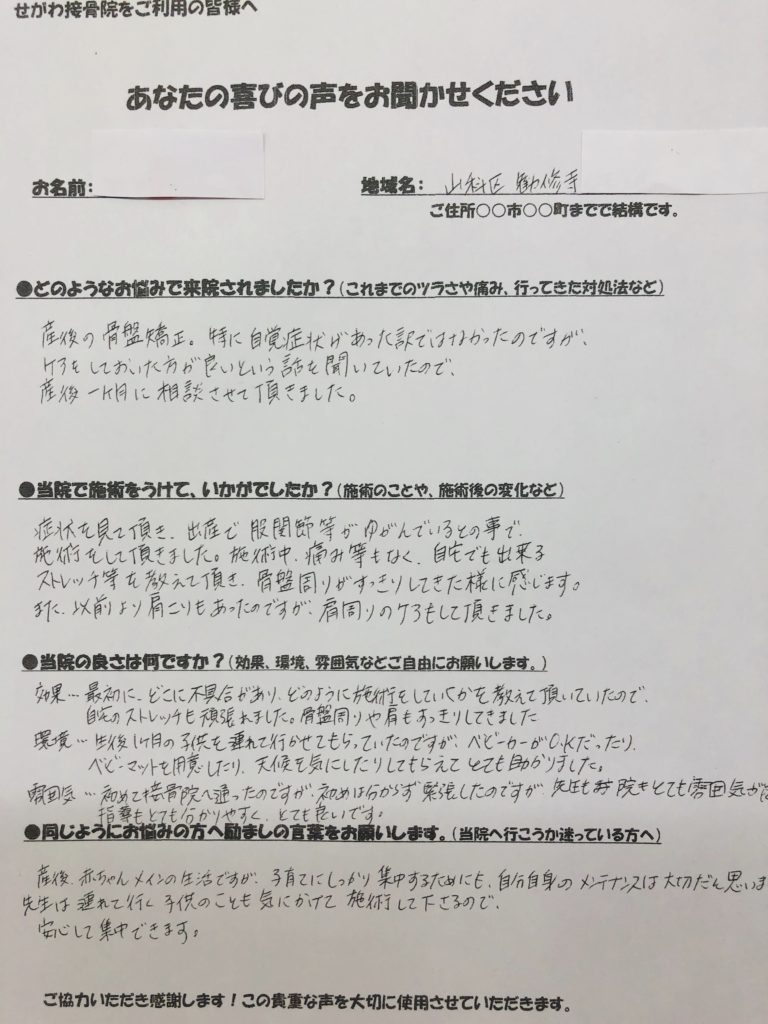 せがわ接骨院をご利用の皆様へ
あなたの喜びの声をお聞かせください
お名前: 地域名: 山科区 勧修寺
ご住所○○市○○町までで結構です。
●どのようなお悩みで来院されましたか？(これまでのツラさや痛み、行ってきた対処法など)
産後の骨盤矯正。特に自覚症状があった訳ではなかったのですが、
ケアをしておいた方が良いという話を聞いていたので、
産後一ヶ月に相談させて頂きました。
●当院で施術をうけて、いかがでしたか？(施術のことや、施術後の変化など)
症状を見て頂き、出産で股関節等がゆがんでいるとの事で、
施術をして頂きました。施術中、痛み等もなく、自宅でも出来る
ストレッチ等を教えて頂き、骨盤周りがすっきりしてきた様に感じます。
また、以前より肩こりもあったのですが、肩周りのケアもして頂きました。
●当院の良さは何ですか？(効果、環境、雰囲気などご自由にお願いします。)
効果… 最初に、どこに不具合があり、どのように施術をしていくかを教えて頂いていたので、
自宅のストレッチも頑張れました。骨盤周りや肩もすっきりしてきました
環境… 生後1ヶ月の子供を連れて行かせてもらっていたのですが、ベビーカーがO.Kだったり、
ベビーマットを用意したり、天候を気にしたりしてもらえてとても助かりました。
雰囲気… 初めて接骨院へ通ったのですが、初めは分からず緊張したのですが、先生も 院もとても雰囲気が
指導もとても分かりやすく、とても良いです。
●同じようにお悩みの方へ励ましの言葉をお願いします。(当院へ行こうか迷っている方へ)
産後、赤ちゃんメインの生活ですが、子育てにしっかり集中するためにも、自分自身のメンテナンスは大切だと思いま
先生は連れて行く子供のことも気にかけて施術して下さるので、
安心して集中できます。
ご協力いただき感謝します！この貴重な声を大切に使用させていただきます。